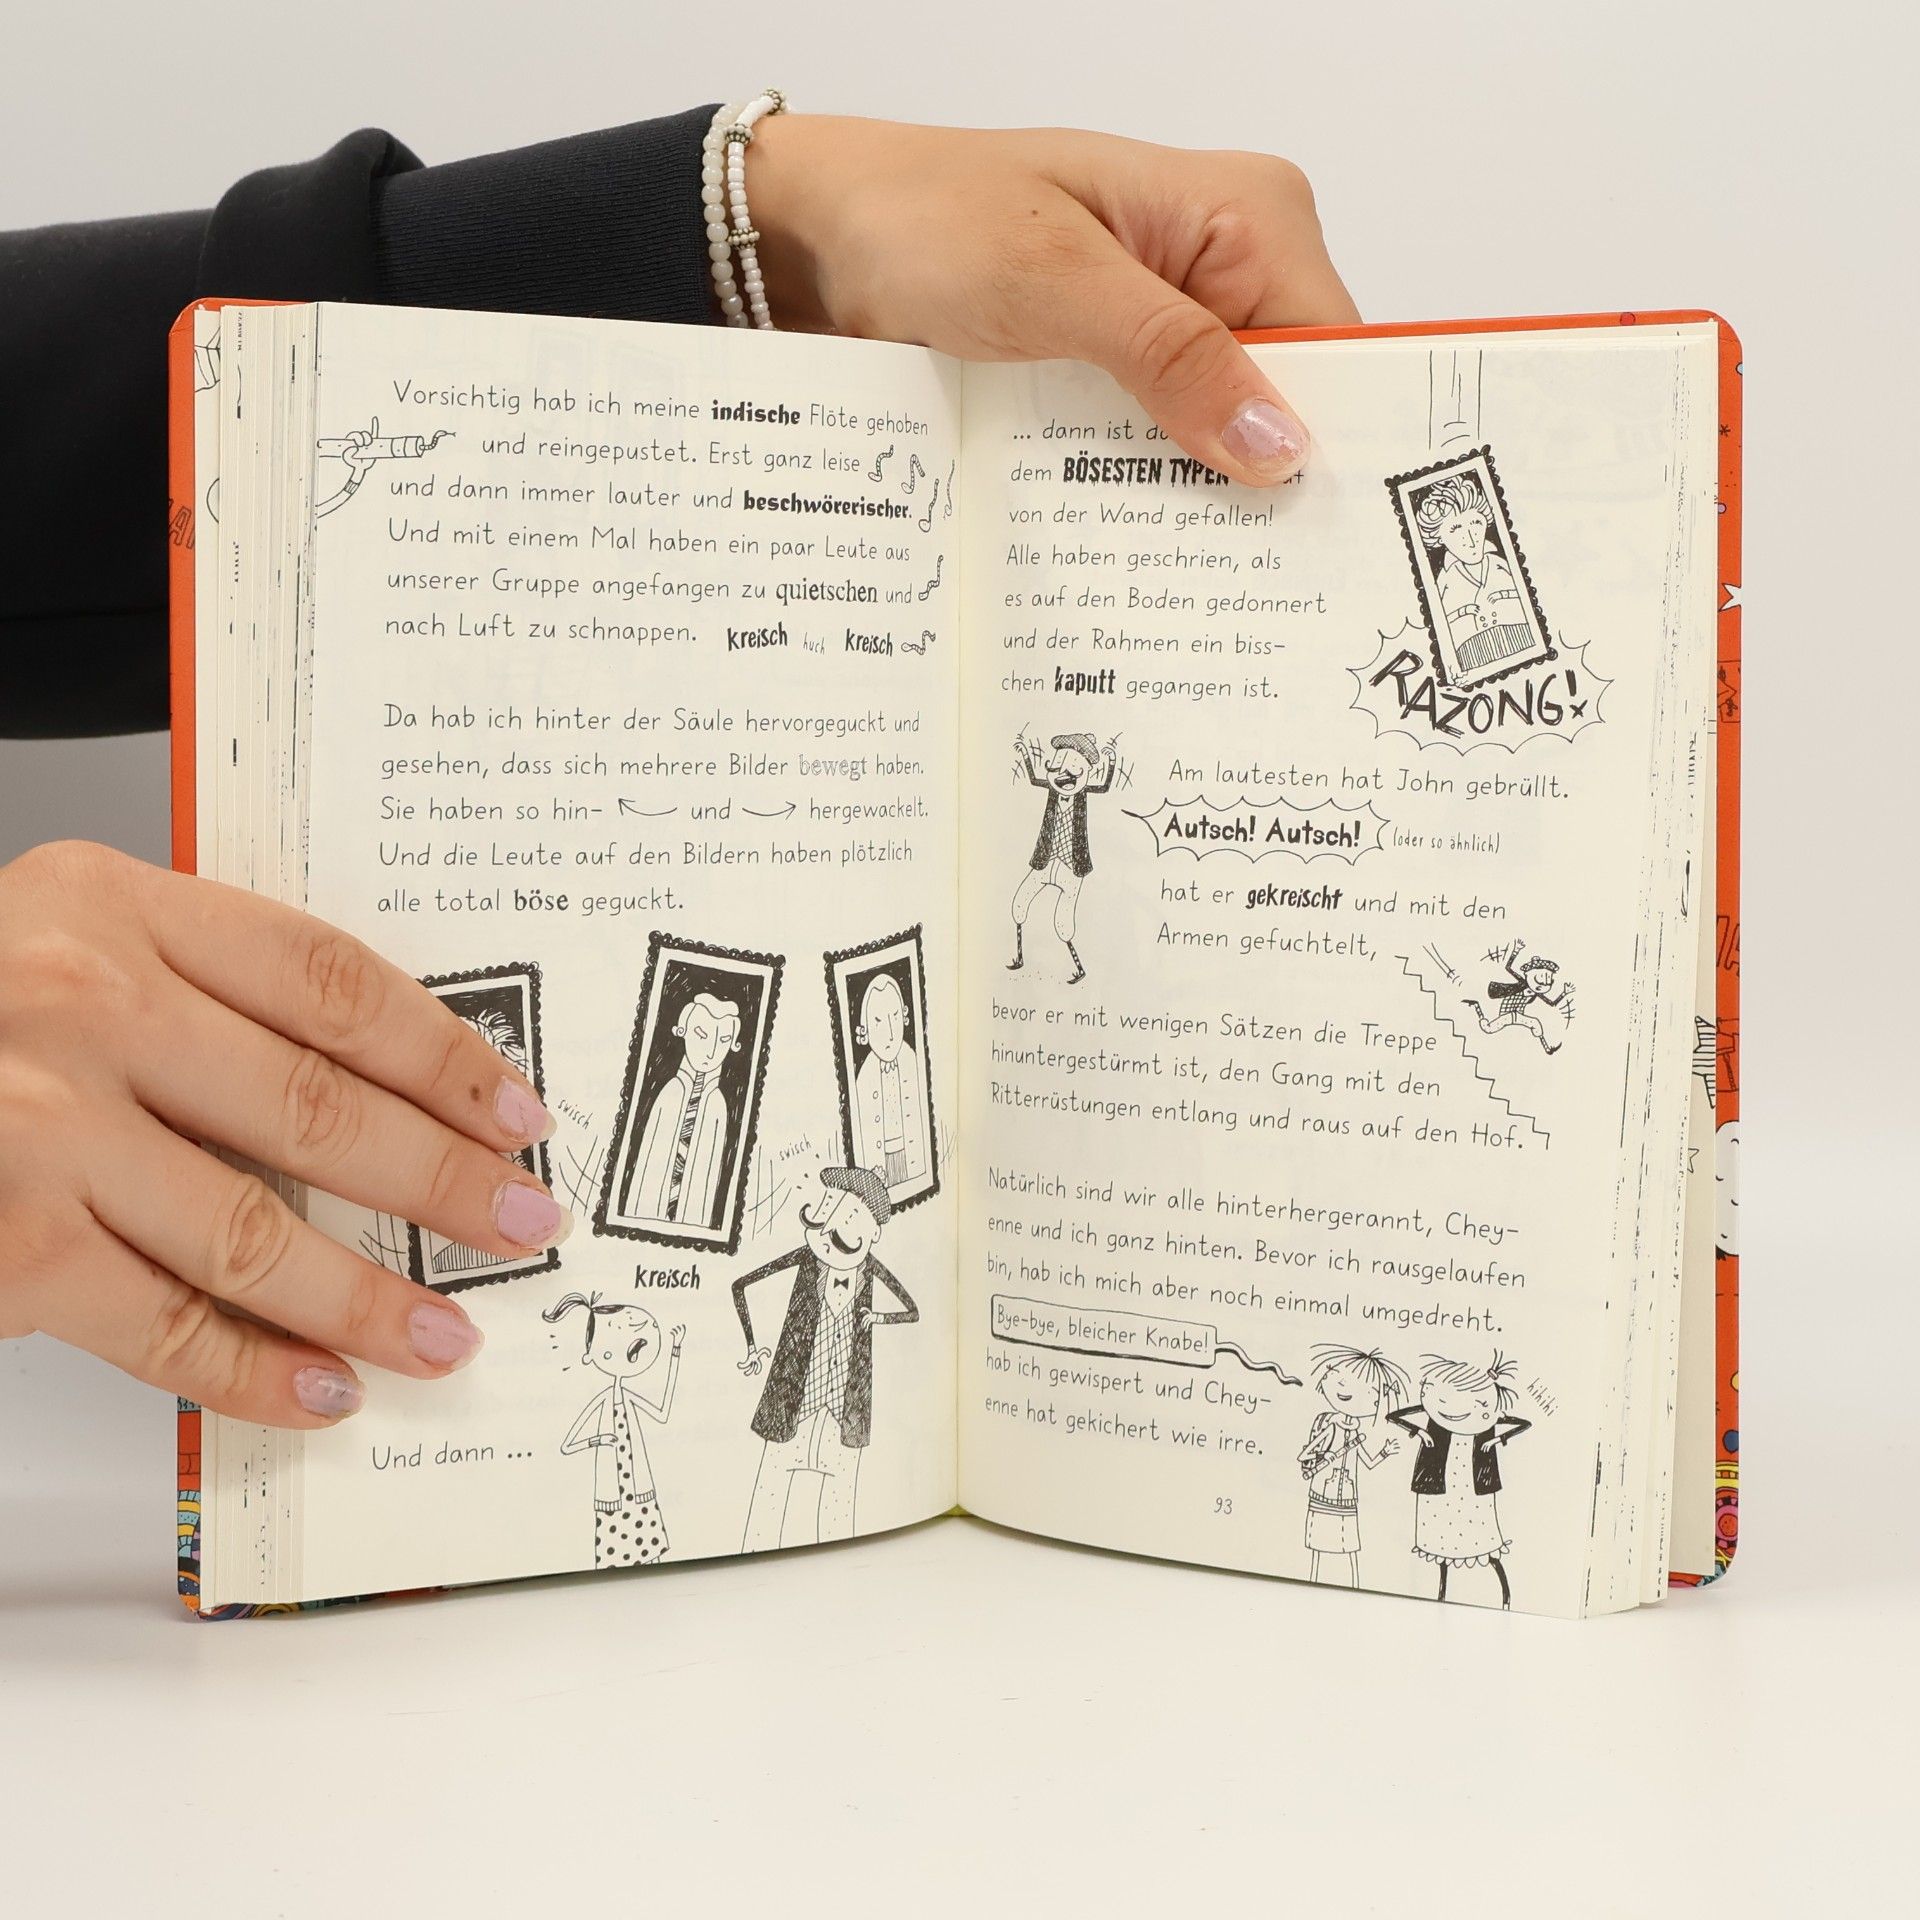 Vorsichtig hab ich meine indische Flöte gehoben
und reingepustet. Erst ganz leise
und dann immer lauter und beschwörerischer.
Und mit einem Mal haben ein paar Leute aus
unserer Gruppe angefangen zu quietschen und
nach Luft zu schnappen. kreisch huch kreisch
Da hab ich hinter der Säule hervorgeguckt und
gesehen, dass sich mehrere Bilder bewegt haben.
Sie haben so hin- und hergewackelt.
Und die Leute auf den Bildern haben plötzlich
alle total böse geguckt.
swisch
swisch
kreisch
Und dann ...
... dann ist
dem BÖSESTEN TYPEN
von der Wand gefallen!
Alle haben geschrien, als
es auf den Boden gedonnert
und der Rahmen ein biss-
chen kaputt gegangen ist.
RAZONG!
Am lautesten hat John gebrüllt.
Autsch! Autsch! (oder so ähnlich)
hat er gekreischt und mit den
Armen gefuchtelt,
bevor er mit wenigen Sätzen die Treppe
hinuntergestürmt ist, den Gang mit den
Ritterrüstungen entlang und raus auf den Hof.
Natürlich sind wir alle hinterhergerannt, Chey-
enne und ich ganz hinten. Bevor ich rausgelaufen
bin, hab ich mich aber noch einmal umgedreht.
Bye-bye, bleicher Knabe!
hab ich gewispert und Chey-
enne hat gekichert wie irre.
hihihi
93